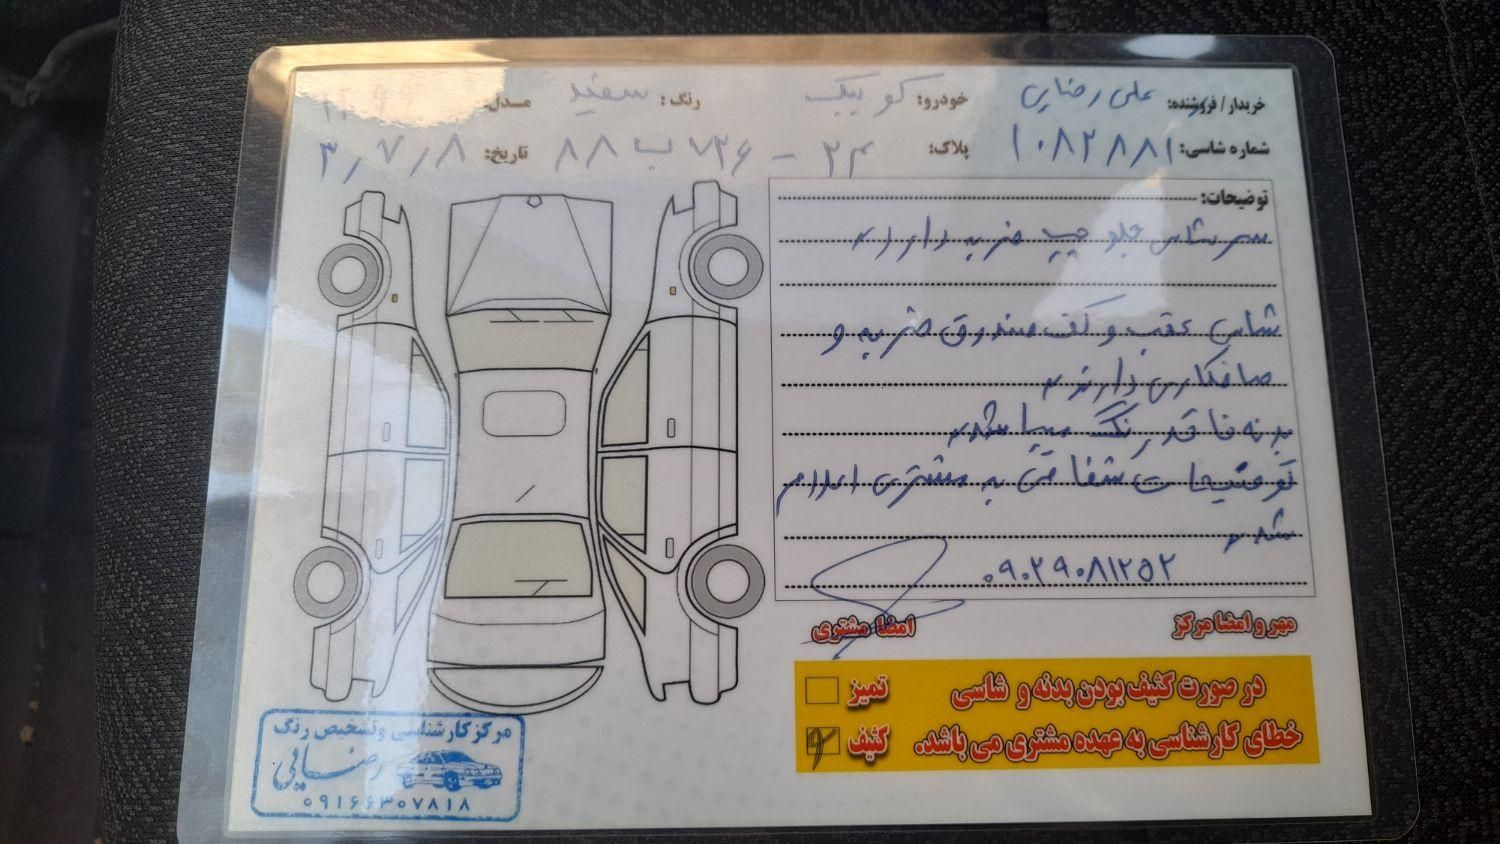 خریدار / فروشنده: علی رضایی خودرو: کوییک رنگ: سفید مدل: ۱۳۹۹
شماره شاسی: ۱۰۸۲۸۸۱ پلاک: ۲۴ - ۷۲۶ ب ۸۸ تاریخ: ۳٫۷٫۸
توضیحات:
سر شاسی جلو چپ ضربه دارد
شاسی عقب و کف صندوق ضربه و
صافکاری دارند
بدنه فاقد رنگ میباشد
توضیحات شفاهی به مشتری اعلام
شد
۰۹۰۲۹۰۸۱۲۵۲
مهر و امضا مرکز امضا مشتری
در صورت کثیف بودن بدنه و شاسی تمیز
خطای کارشناسی به عهده مشتری می باشد. کثیف
مرکز کارشناسی و تشخیص رنگ
رضایی
۰۹۱۶۶۳۰۷۸۱۸